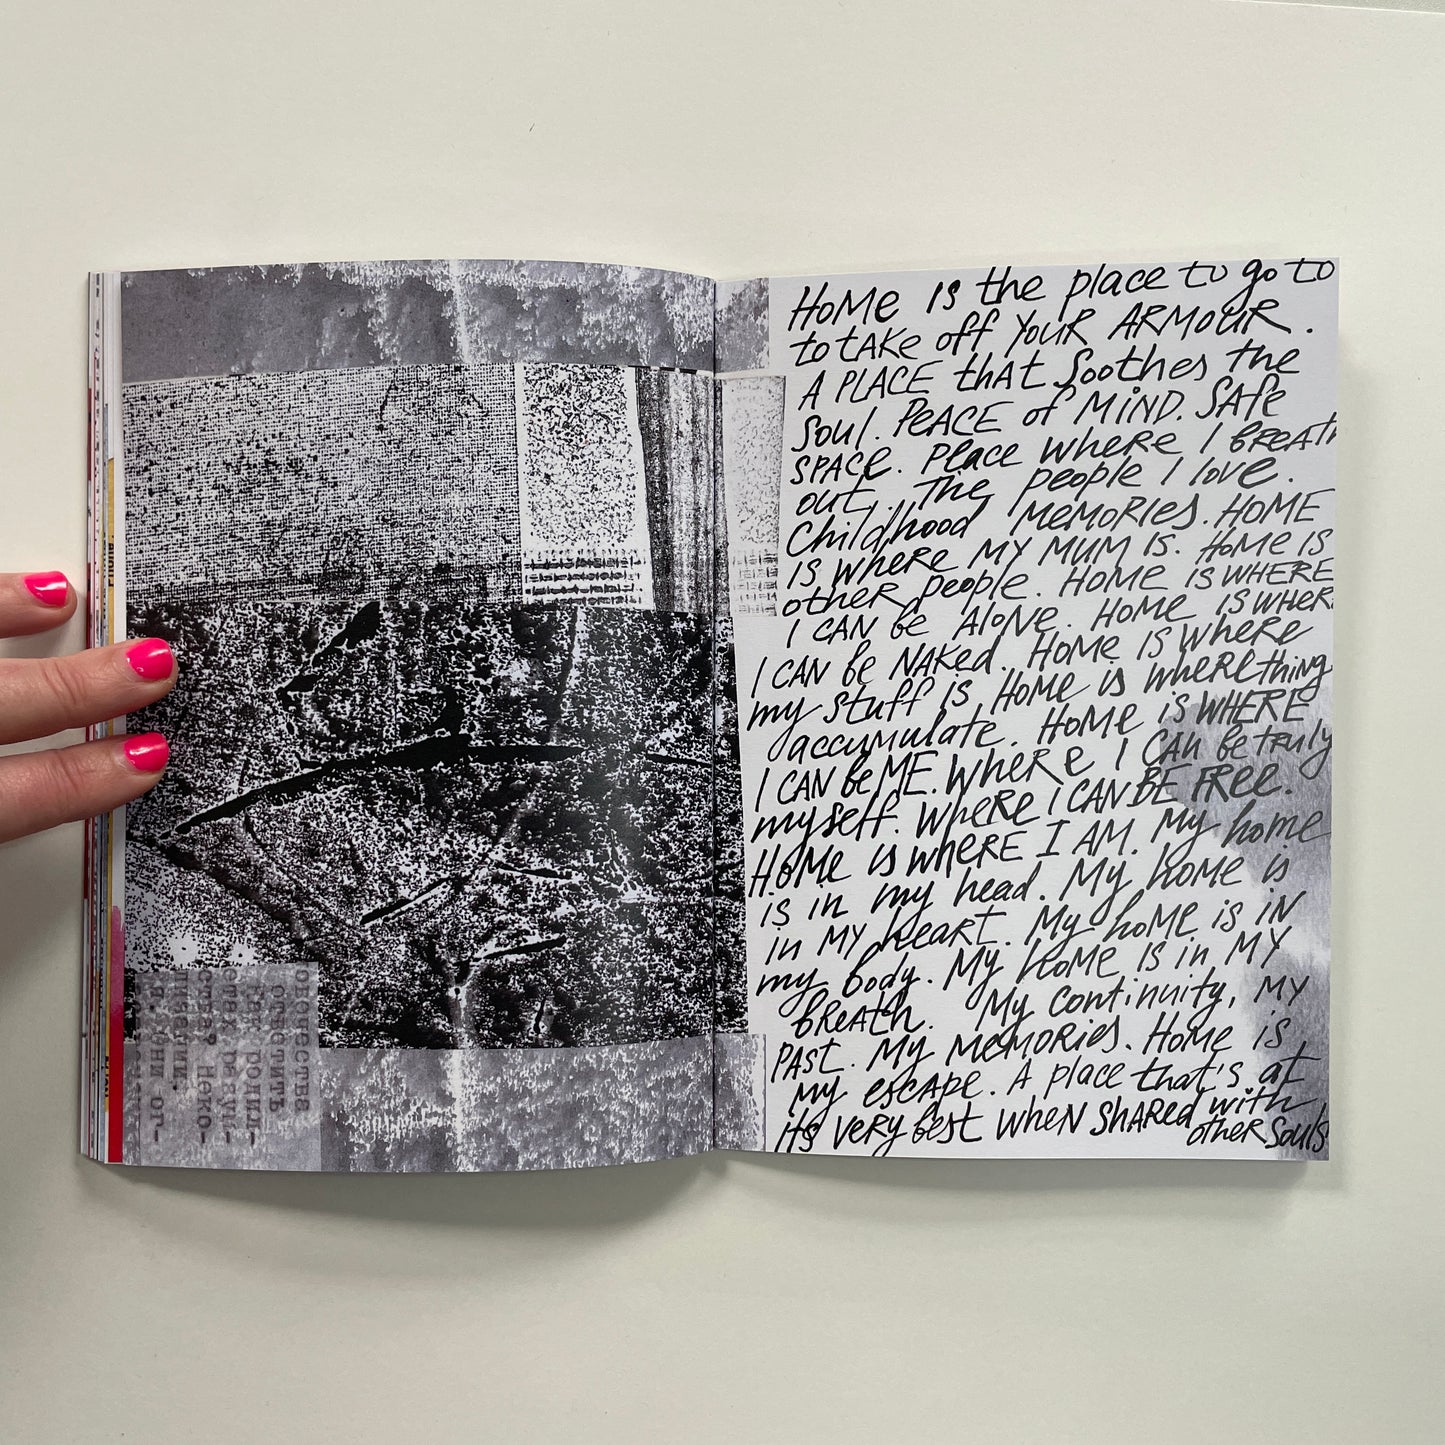 HOME IS the place to go to
to tAKe off YOUR ARMOUR.
A PLACE that Soothes the
soul. PeACE of MiND. SAfe
SPACE. Place wheRe I BREATH
out. The people I love.
Childhood MeMoRies. HOME
IS where MY MUM IS. HoMe IS
otheR people. HOMe IS WHERE
I CAN be AloNe. HOMe IS WHER
I CAN be NAKed. HoMe IS where
my stuff is HoMe is where thing
accumulate. HoMe is WHERE
I CAN be ME. WheRe I CAN be tRuly
myself. WheRe I CAN BE FRee.
HoMe is wheRe I AM. My home
is in my head. My home is
in MY heart. My hoMe is iN
my body. My hoMe is in MY
bReath. My continuity, MY
PAst. My MeMoRies. Home is
my escape. A place that's at
its very best wheN ShARed with
otheR souls
очества
отстить
как родил-
етях разум-
ства? Неко-